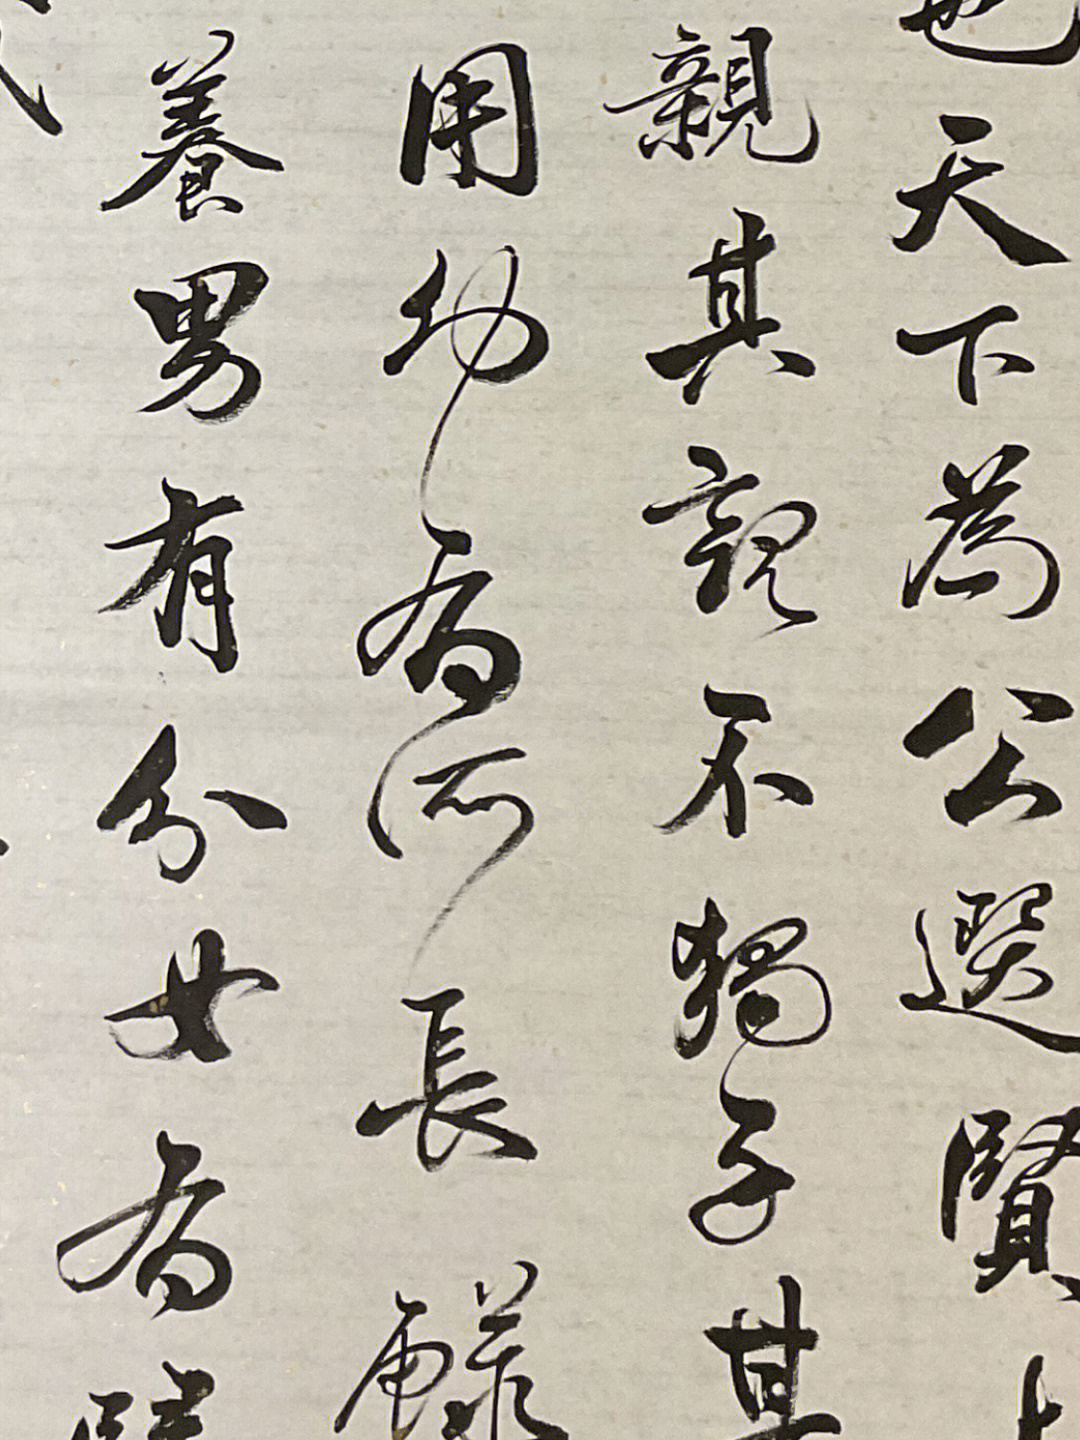 也天下為公選賢
親其親不獨子其
用幼有所長
養男有分女有